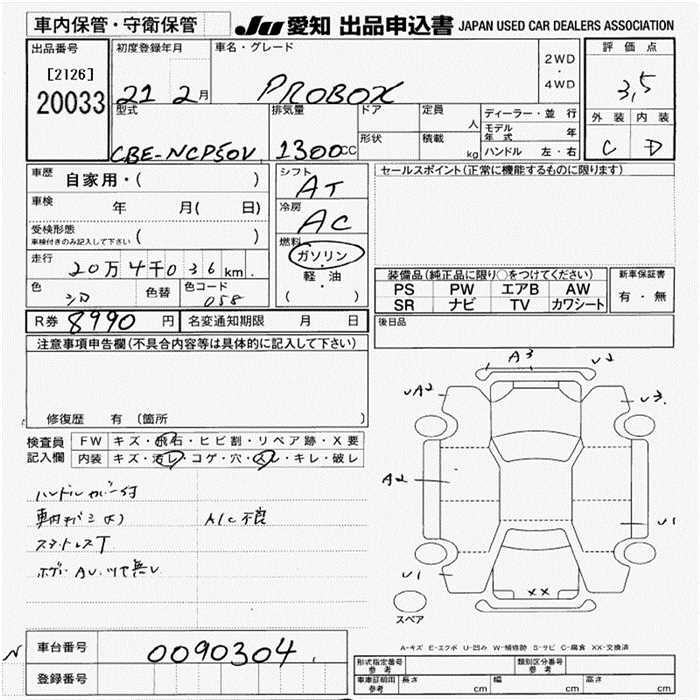 車内保管・守衛保管 JU 愛知 出品申込書 JAPAN USED CAR DEALERS ASSOCIATION
出品番号 初度登録年月 車名・グレード 2WD・4WD 評価点
[2126] 20033 21 2月 PROBOX 3,5
型式 排気量 ドア 定員 人 ディーラー・並行 外装 内装
CBE-NCP50V 1300CC 形状 積載 kg モデル年式 年 C D
ハンドル 左・右
車歴 自家用・( ) シフト AT セールスポイント(正常に機能するものに限ります)
車検 年 月( 日) 冷房 AC
受検形態 ( )
車検付きのみ記入して下さい
燃料 ガソリン・軽・油 ( )
走行 20万4千036km.
装備品(純正品に限り○をつけてください) 新車保証書
色 シロ 色替 色コード 058
PS PW エアB AW 有・無
SR ナビ TV カワシート
R券 8990円 名変通知期限 月 日 後日品
注意事項申告欄(不具合内容等は具体的に記入して下さい)
修復歴 有 (箇所
検査員記入欄 FW キズ・飛石・ヒビ割・リペア跡・X要
内装 キズ・汚レ・コゲ・穴・スレ・キレ・破レ
ハンドルカバー付
A/C不良
スタットレスT
A3 U2
UA2 U3
A2 U1
U1 XX
スペア
A-キズ E-エクボ U-凹み W-補修跡 S-サビ C-腐食 XX-交換済
N 車台番号 0090304
登録番号
形式指定番号 参考 類別区分番号 参考
車庫証明用 参考 長さ cm 幅 cm 高さ cm